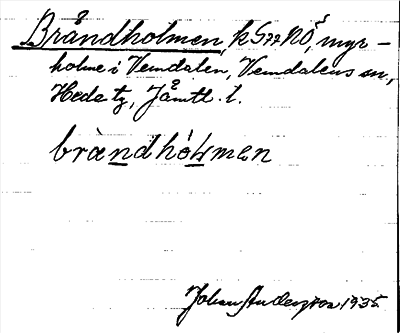 Bråndholmen, k S77NÖ, myr-
holme i Vemdalen, Vemdalens sn,
Hede tg, Jämtl. l.
bràndhóLmen
Johan Anderzon 1935